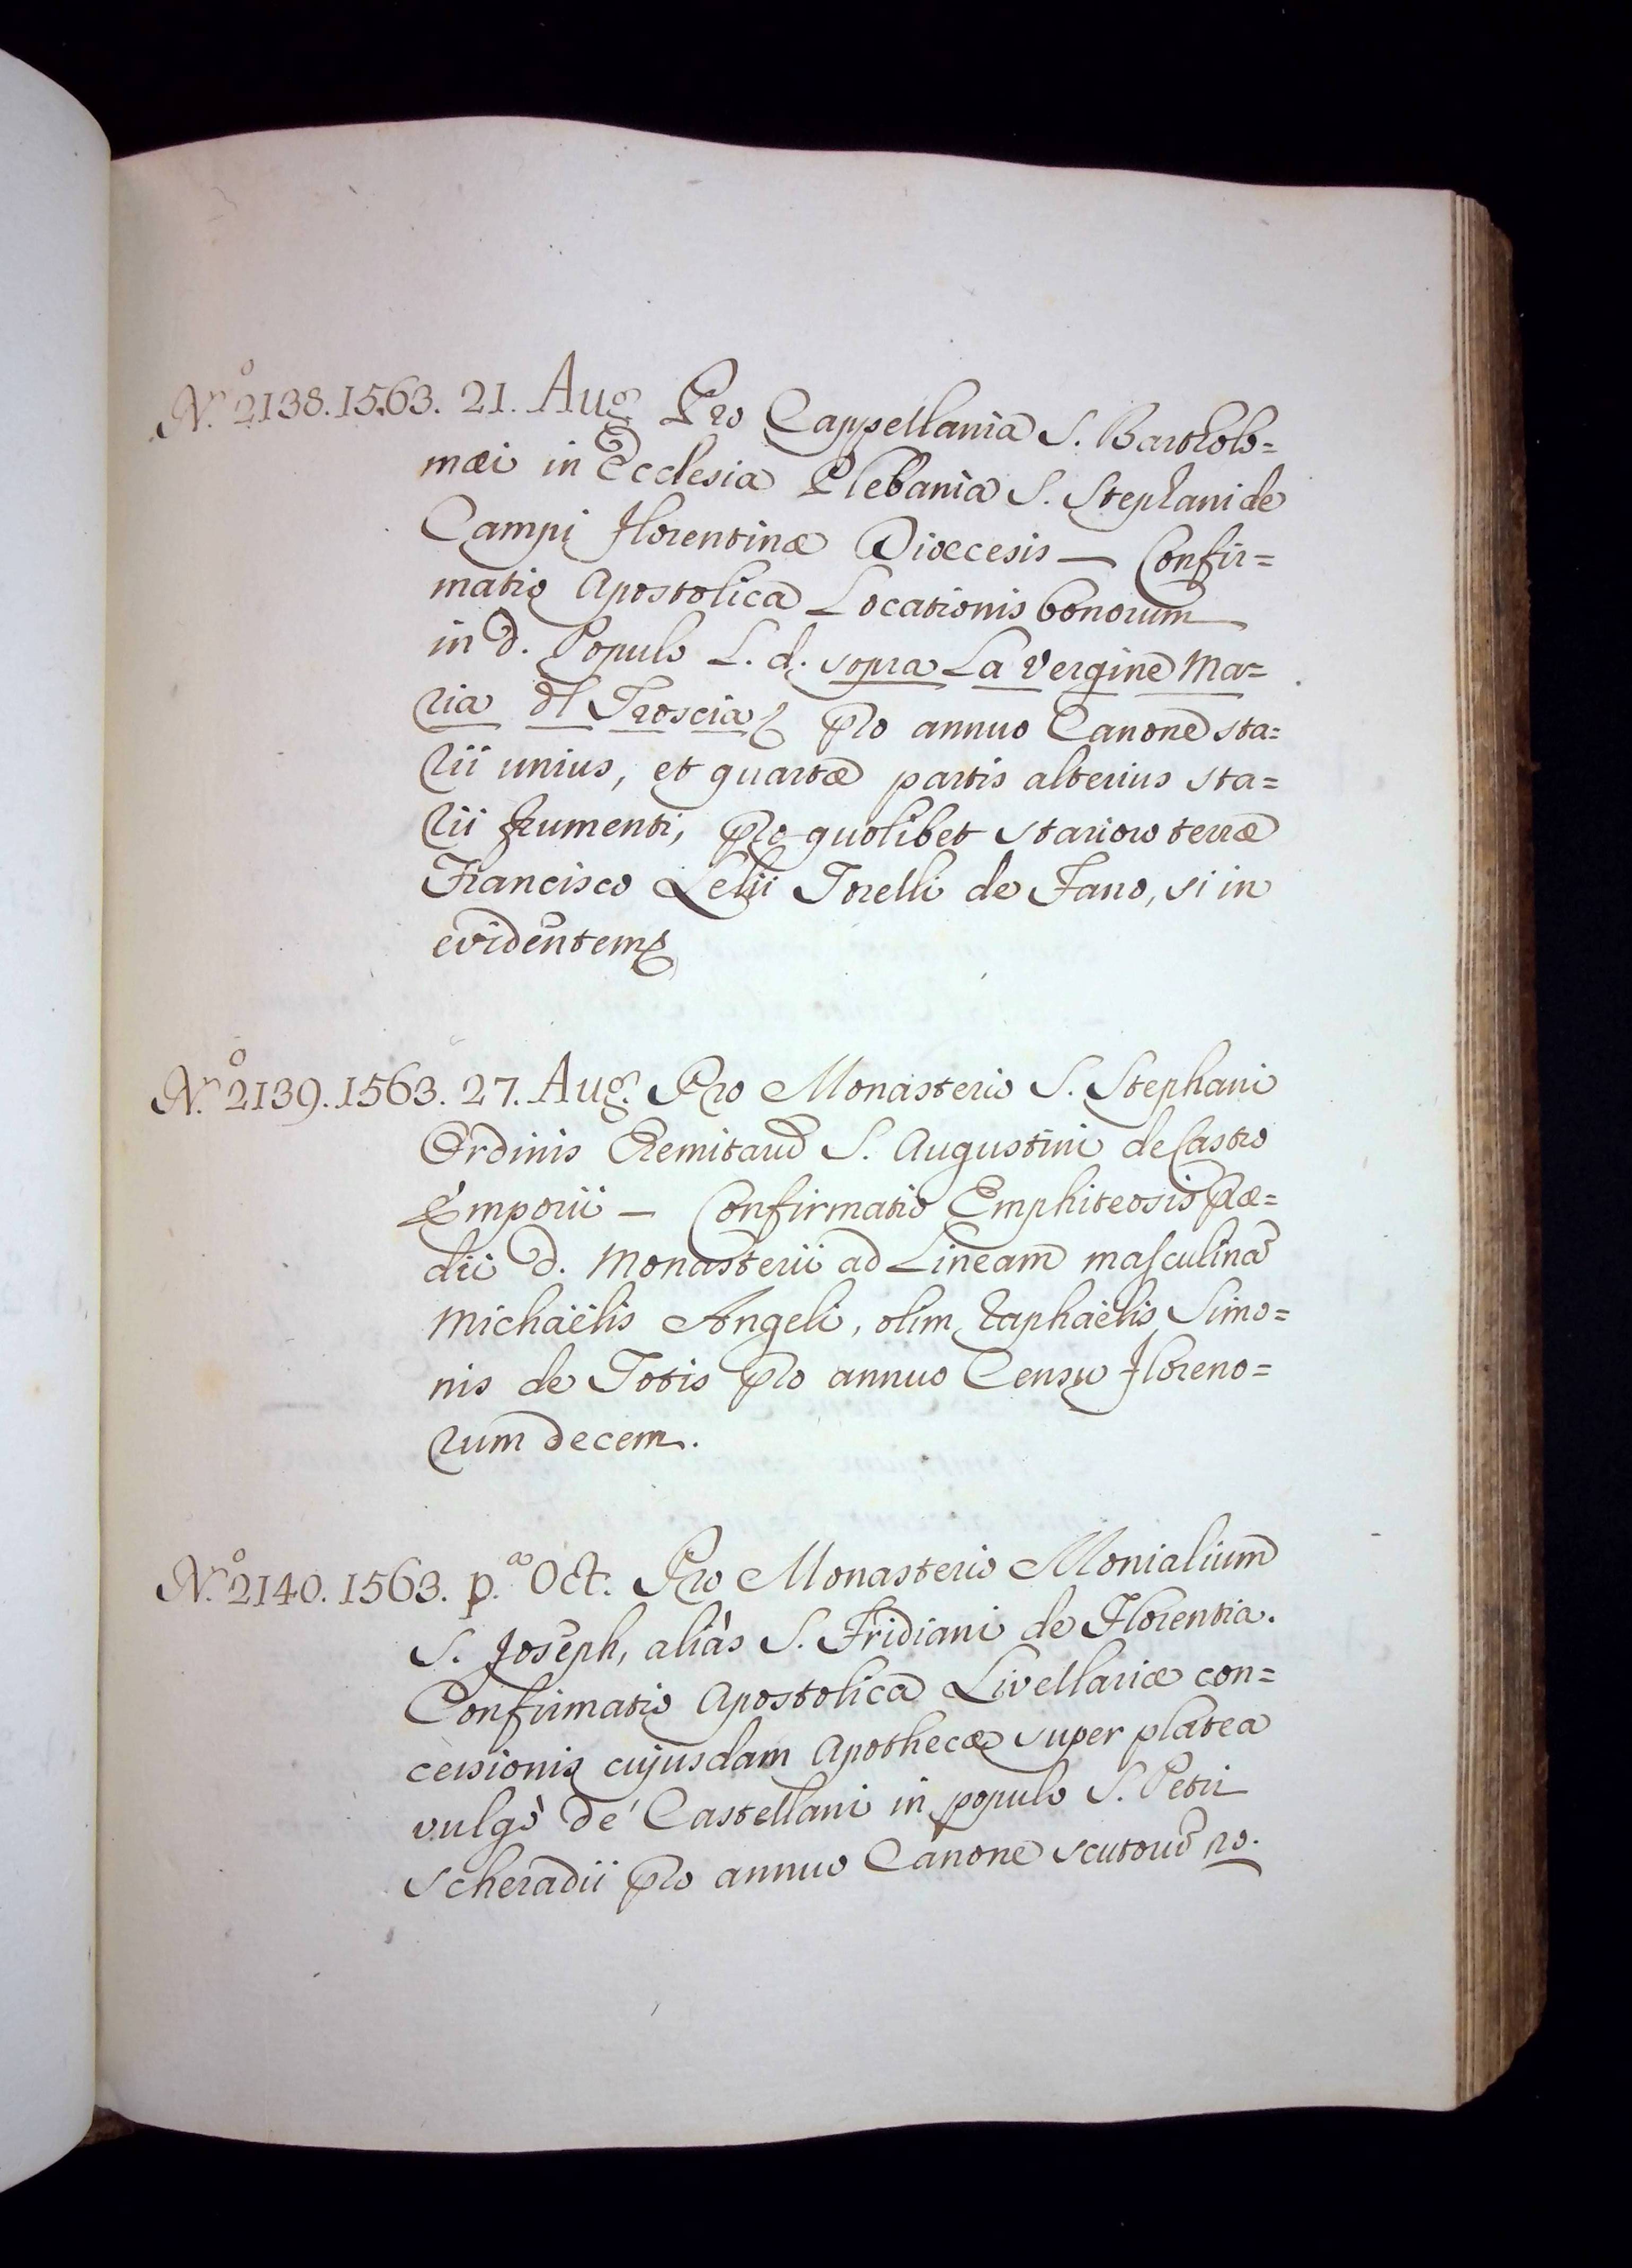 N.º 2138. 1563. 21. Aug. Pro Cappellania S. Bartholo=
mæi in Ecclesia Plebania S. Stephani de
Campi Florentinæ Diœcesis — Confir=
matio Apostolica Locationis bonorum
in d. Populo L. d. sopra La Vergine Ma=
ria dl Troscia pro annuo Canone sta=
rii unius, et quartæ partis alterius sta=
rii frumenti, pro quolibet starioro terræ
Francisco Lelii Torelli de Fano, si in
evidentem
N.º 2139. 1563. 27. Aug. Pro Monasterio S. Stephani
Ordinis Eremitarũ S. Augustini de Castro
Emporii — Confirmatio Emphiteosis præ=
dii d. Monasterii ad Lineam masculinã
Michaëlis Angeli, olim Raphaëlis Simo=
nis de Totis pro annuo Censu Floreno=
rum decem.
N.º 2140. 1563. p.ª Oct. Pro Monasterio Monialium
S. Joseph, aliàs S. Fridiani de Florentia.
Confirmatio Apostolica Livellariæ con=
cessionis cujusdam Apothecæ super platea
vulgò de' Castellani in populo S. Petri
Scheradii pro annuo Canone scutorũ